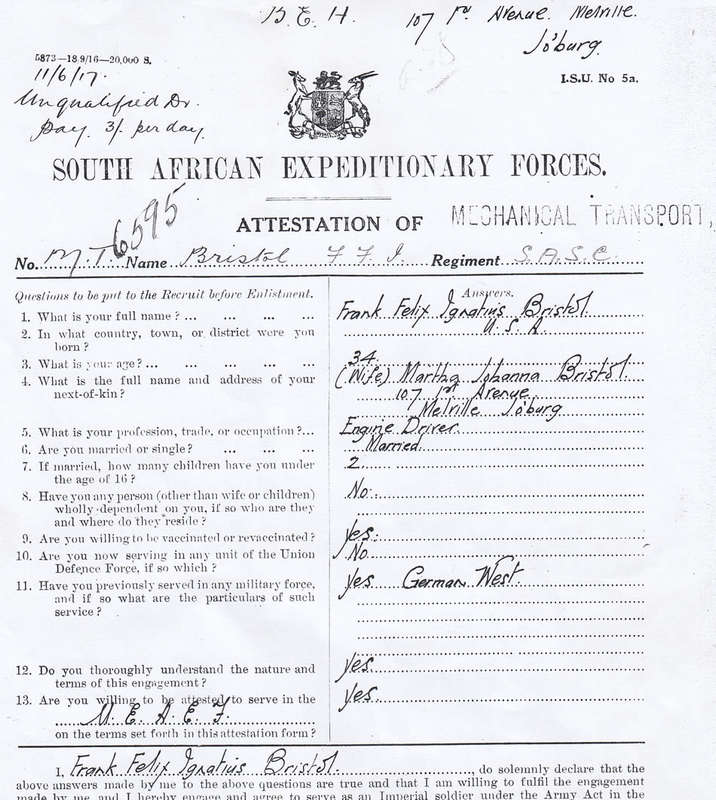 B.E.H. 107 1st Avenue. Melville.
Jo'burg.
5873—18/9/16—20,000 S.
11/6/17.
I.S.U. No 5a.
Unqualified Dr.
Pay 3/- per day.
SOUTH AFRICAN EXPEDITIONARY FORCES.
6595
ATTESTATION OF MECHANICAL TRANSPORT,
No. M.T. Name Bristol F F I Regiment S.A.S.C.
Questions to be put to the Recruit before Enlistment. Answers.
1. What is your full name ? ... ... ... ... Frank Felix Ignatius Bristol
2. In what country, town, or district were you U.S.A
born ?
3. What is your age ? ... ... ... ... ... 34
4. What is the full name and address of your (Wife) Martha Johanna Bristol
next-of-kin ? 107 1st Avenue
Melville Jo'burg
5. What is your profession, trade, or occupation ?... Engine Driver
6. Are you married or single ? ... ... ... Married
7. If married, how many children have you under 2
the age of 16 ?
8. Have you any person (other than wife or children) No.
wholly dependent on you, if so who are they
and where do they reside ?
9. Are you willing to be vaccinated or revaccinated ? Yes.
10. Are you now serving in any unit of the Union No
Defence Force, if so which ?
11. Have you previously served in any military force, Yes German West.
and if so what are the particulars of such
service ?
12. Do you thoroughly understand the nature and Yes
terms of this engagement ?
13. Are you willing to be attested to serve in the Yes
M. E. A. E. F.
on the terms set forth in this attestation form ?
I, Frank Felix Ignatius Bristol, do solemnly declare that the
above answers made by me to the above questions are true and that I am willing to fulfil the engagement
made by me, and I hereby engage and agree to serve as an Imperial soldier under the Army Act in the